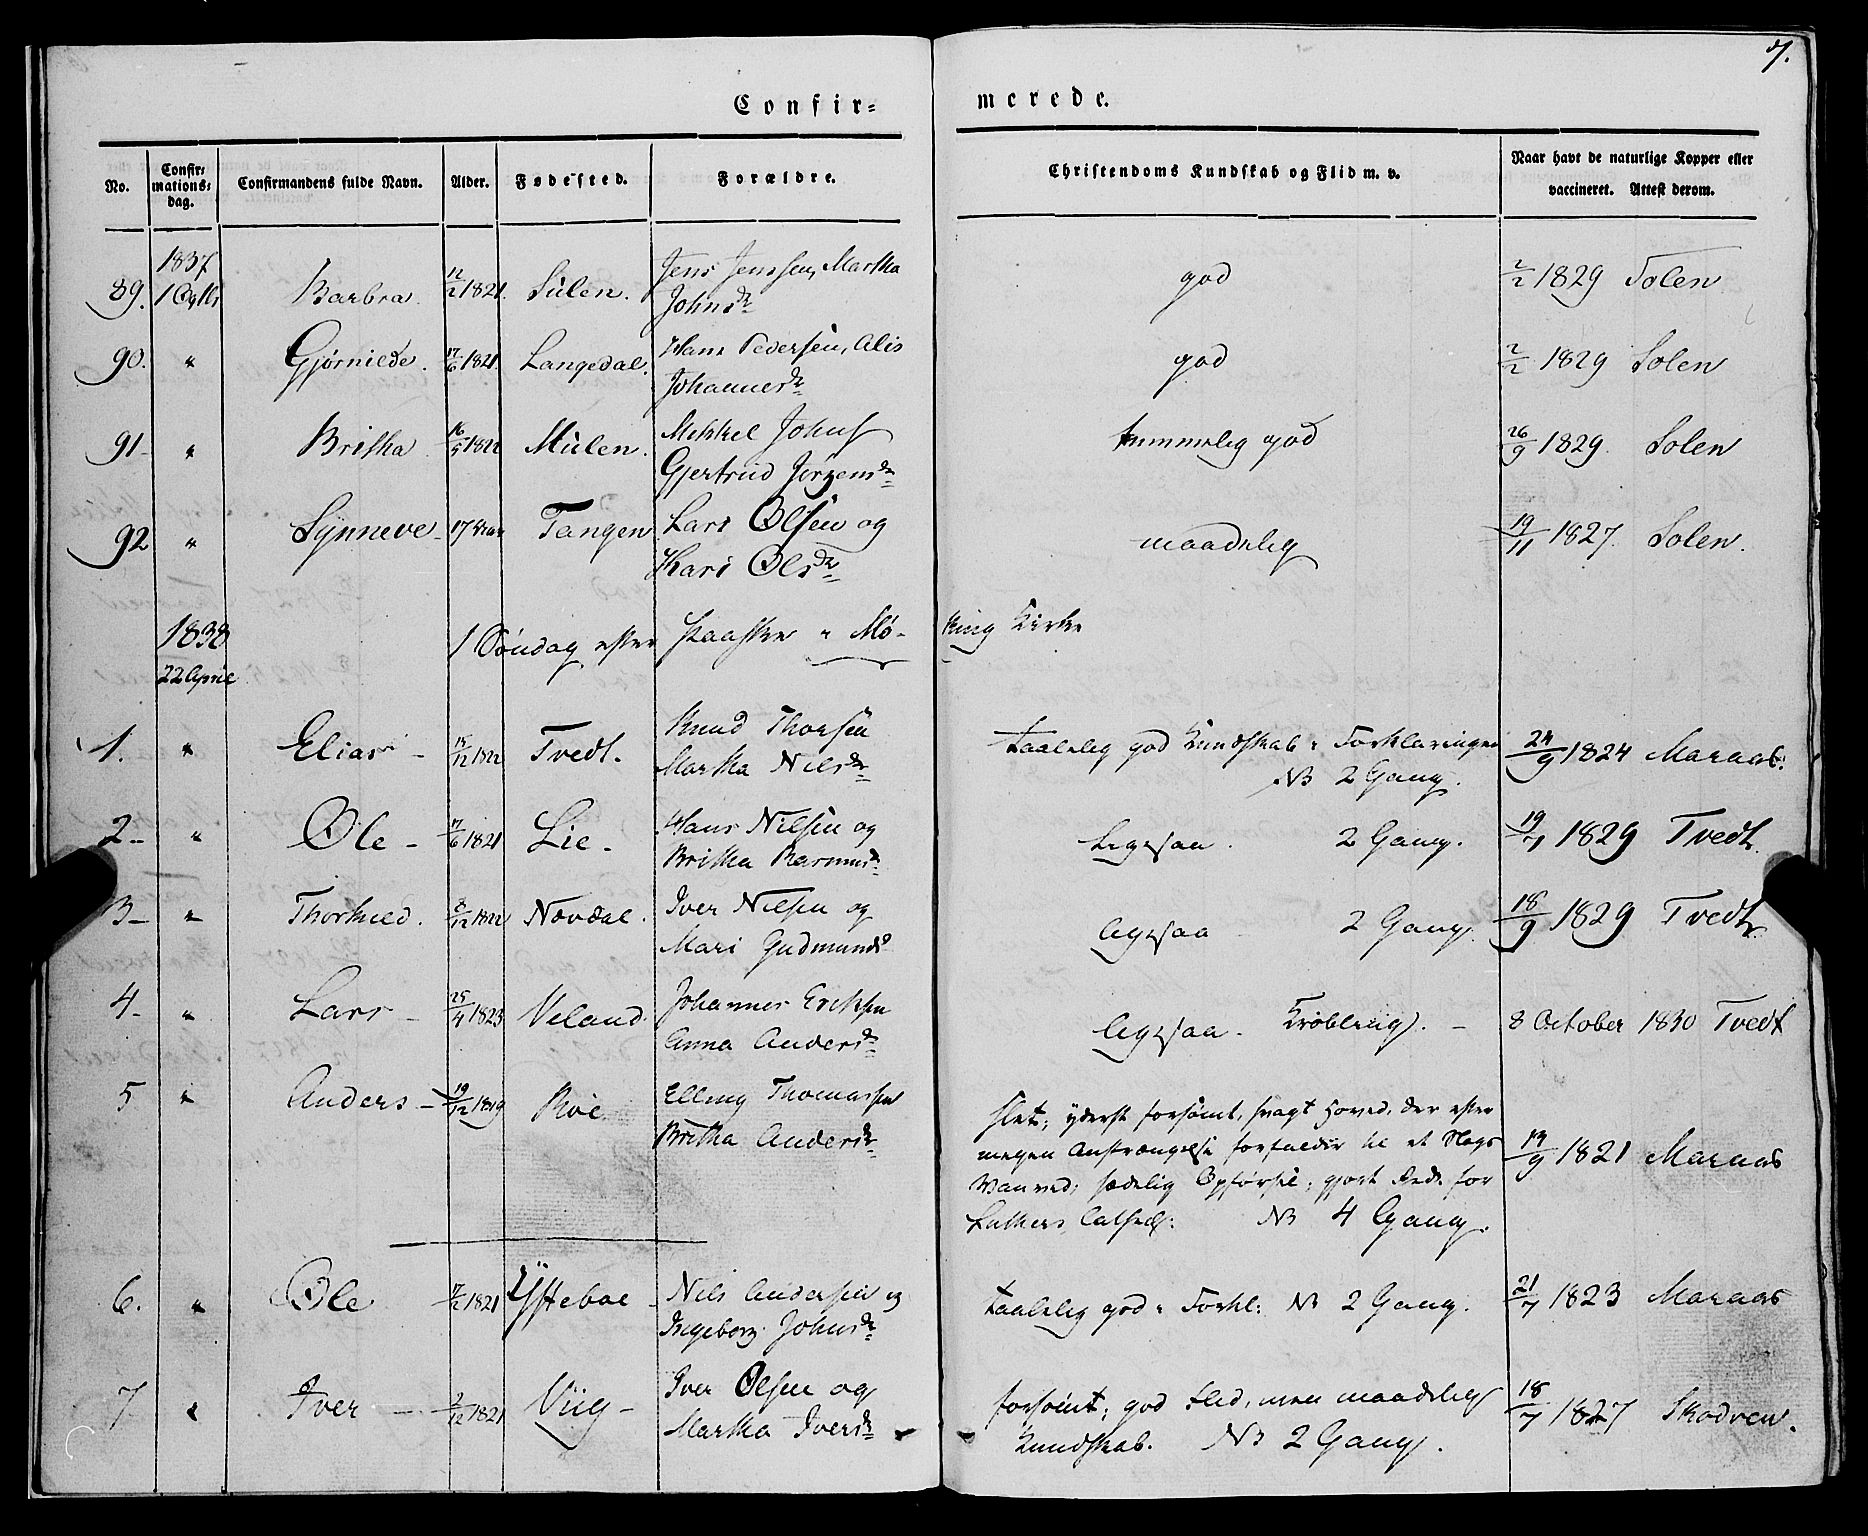 7.
Confir= merede.
No. Confir= mations= dag. Confirmandens fulde Navn. Alder. Fødested. Forældre. Christendoms Kundskab og Flid m. v. Naar havt de naturlige Kopper eller vaccineret. Attest derom.
1837
89. 1 Barbra. 12/2 1821. Sulen. Jens Jenssen, Martha Johnsdr god 2/2 1829 Solen
90. " 17/6 1821. Langedal. Hans Pedersen, Alis Johannesdr god 2/2 1829 Solen
91- " Britha 16/5 1822 Mulen. Mikkel Johns Gjertrud Jørgensdr temmelig god 26/9 1829. Solen
92 " Synneve- 17 Tangen Lars Olsen og Kari Olsdr maadelig 19/11 1827. Solen.
1838
22 April 1 Søndag efter Paaske i Mø- kring Kirke
1. " Elias - 15/12 1822 Tvedt. Knud Thorsen Martha Nilsdr taalelig god Kundskab i Forklaringen NB 2 Gang. 24/9 1824 Maraas.
2- " Ole - 17/6 1821 Lie- Hans Nilsen og Britha Rasmusdr Ligesaa. 2 Gang. 19/7 1829 Tvedt
3- " 8/12 1822 Novdal. Iver Nilsen og Mari Gudmundsd ligesaa 2 Gang. 18/9 1829 Tvedt
4- " Lars - 25/4 1823 Veland. Johannes Ericksen Anna Andersdr ligesaa - Krøbling. - 8 October 1830 Tvedt
5 " Anders - 19/12 1819 Roe Elling Thomassen Britha Andersdr slet; yderst forsømt, svagt Hoved, der efter
megen Anstrængelse forfalder til et Slags
Vanvid; sædelig Opførsel; gjort Rede for
Luthers Cathech: NB 4 Gang. 19/9 1821 Maraas
6. " Ole 17/2 1821 Ystebøe - Nils Andersen og Ingeborg Johnsdr taalelig god i Forkl: NB 2 Gang. 21/7 1823 Maraas
7- " Iver - 2/12 1821 Viig - Iver Olsen og Martha Iversdr forsømt; god Flid, men maadelig Kundskab. NB 2 Gang. 18/7 1827 Skodven.